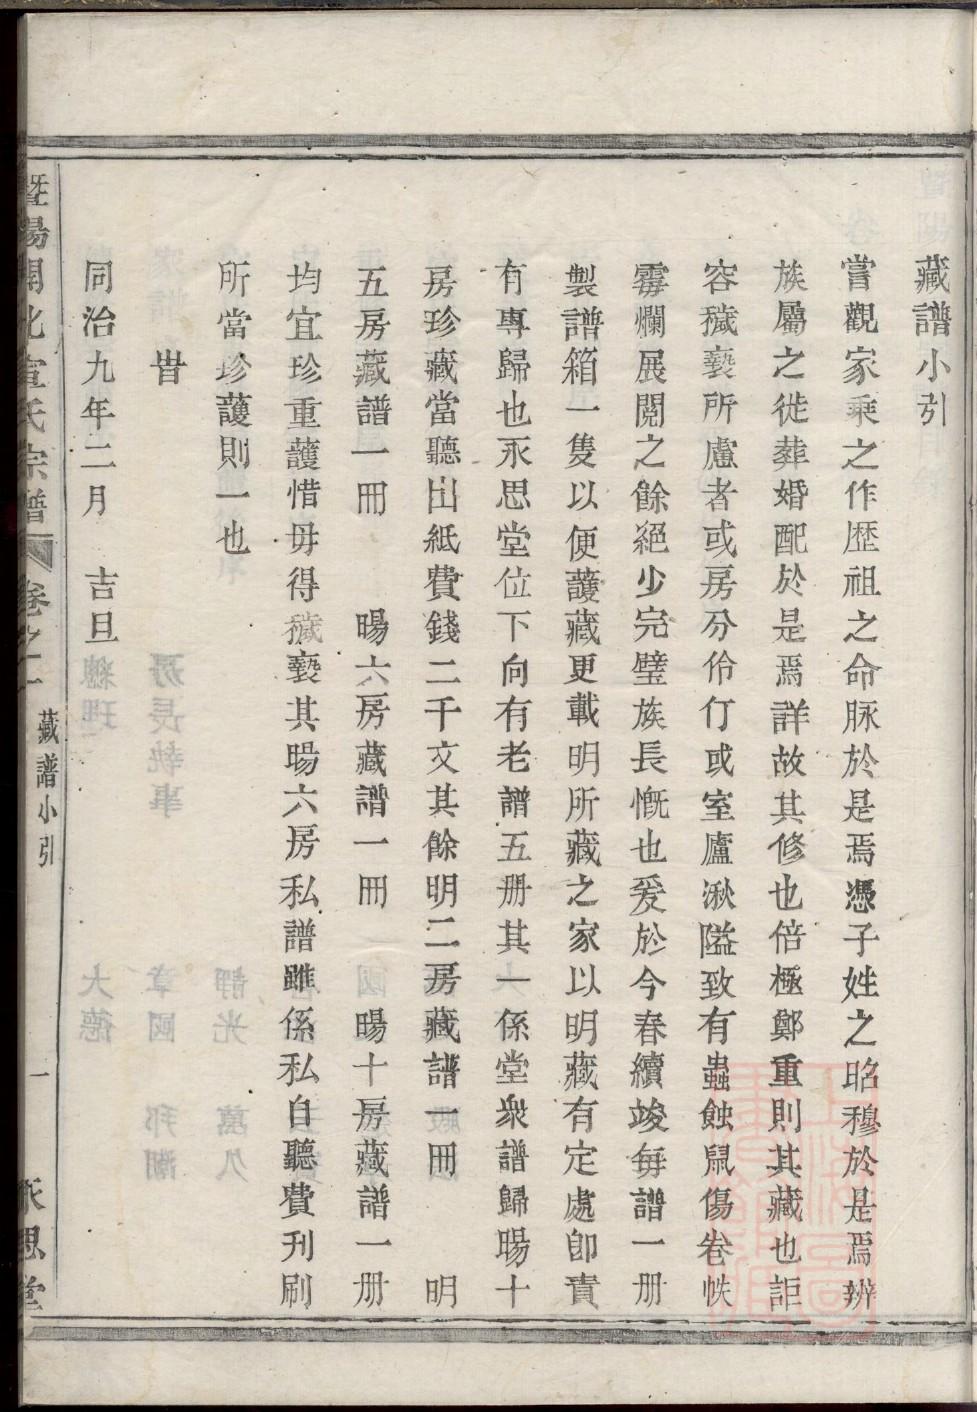 藏譜小引
嘗觀家乘之作歷祖之命脉於是焉憑子姓之昭穆於是焉辨
族屬之徙葬婚配於是焉詳故其修也倍極鄭重則其藏也詎
容穢褻所慮者或房分伶仃或室廬湫隘致有蟲蝕鼠傷卷帙
霉爛展閱之餘絕少完璧族長慨也爰於今春續竣每譜一册
製譜箱一隻以便護藏更載明所藏之家以明藏有定處卽責
有專歸也永思堂位下向有老譜五册其一係堂衆譜歸暘十
房珍藏當聽出紙費錢二千文其餘明二房藏譜一冊　明
五房藏譜一冊　暘六房藏譜一冊　暘十房藏譜一册
均宜珍重護惜毋得穢褻其暘六房私譜雖係私自聽費刋刷
所當珍護則一也
旹
同治九年二月　吉旦
暨陽開化宣氏宗譜　卷之一　藏譜小引　一　永思堂